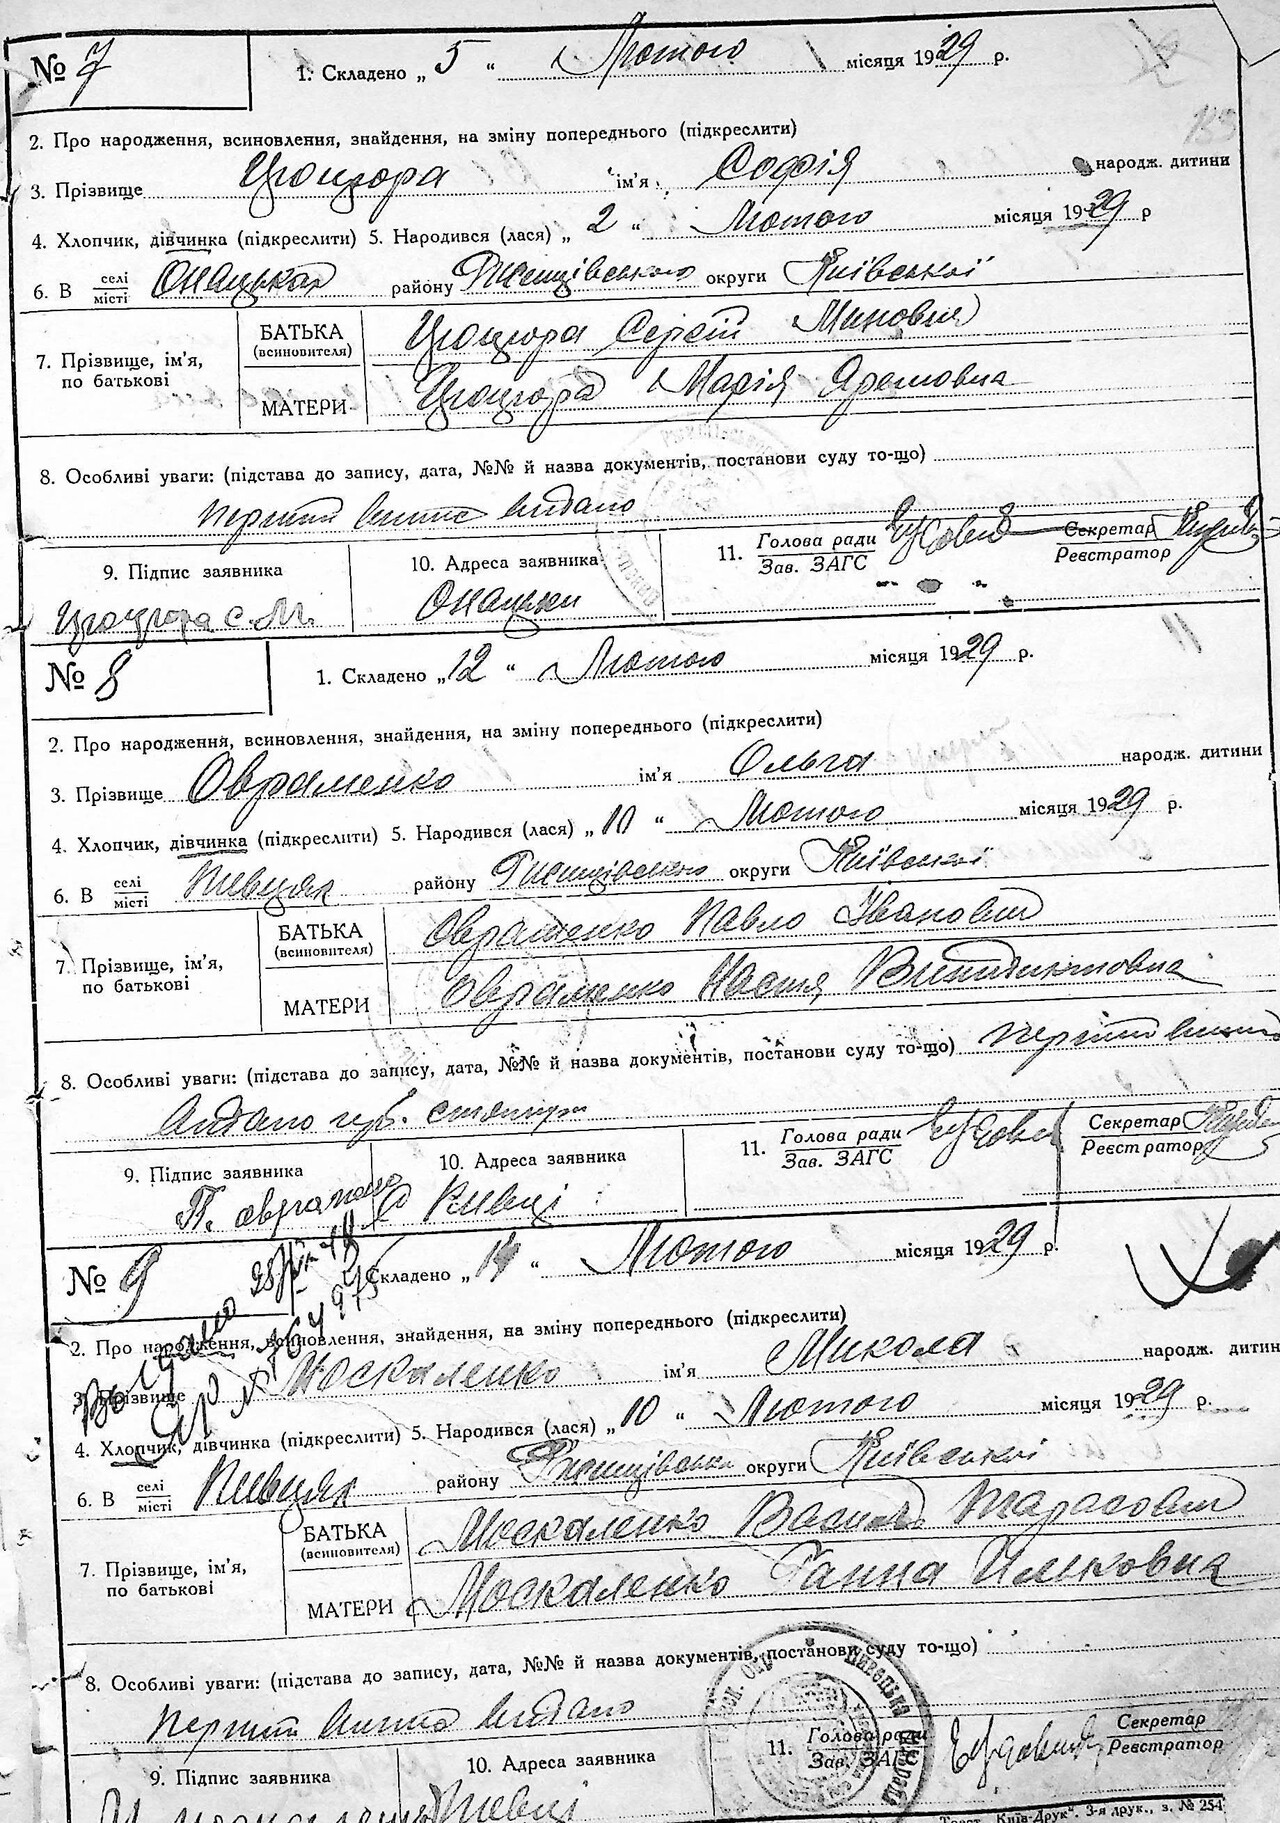 № 7
1. Складено „ 5 “ Лютого місяця 1929 р.
2. Про народження, всиновлення, знайдення, на зміну попереднього (підкреслити)
3. Прізвище Цюцюра ім'я Софія народж. дитини
4. Хлопчик, дівчинка (підкреслити) 5. Народився (лася) „ 2 “ Лютого місяця 1929 р
6. В селі/місті Онацьках району Ржищівського округи Київської
7. Прізвище, ім'я, по батькові
БАТЬКА (всиновителя) Цюцюра Сергій Минович
МАТЕРИ Цюцюра Марія Яремовна
8. Особливі уваги: (підстава до запису, дата, №№ й назва документів, постанови суду то-що)
перший випис видано
9. Підпис заявника
10. Адреса заявника
11. Голова ради/Зав. ЗАГС Секретар/Реєстратор
Цюцюра С. М.
Онацьки
№ 8
1. Складено „ 12 “ Лютого місяця 1929 р.
2. Про народження, всиновлення, знайдення, на зміну попереднього (підкреслити)
3. Прізвище Овраменко ім'я Ольга народж. дитини
4. Хлопчик, дівчинка (підкреслити) 5. Народився (лася) „ 10 “ Лютого місяця 1929 р.
6. В селі/місті Пивцях району Ржищівського округи Київської
7. Прізвище, ім'я, по батькові
БАТЬКА (всиновителя) Овраменко Павло Іванович
МАТЕРИ Овраменко Настя Винидиктовна
8. Особливі уваги: (підстава до запису, дата, №№ й назва документів, постанови суду то-що) перший випис
видано
9. Підпис заявника
10. Адреса заявника
11. Голова ради/Зав. ЗАГС Секретар/Реєстратор
Пивці
№ 9
Складено „ 14 “ Лютого місяця 1929 р.
2. Про народження, всиновлення, знайдення, на зміну попереднього (підкреслити)
3. Прізвище Москаленко ім'я Микола народж. дитин
4. Хлопчик, дівчинка (підкреслити) 5. Народився (лася) „ 10 “ Лютого місяця 1929 р.
6. В селі/місті Пивцях району Ржищівськ округи Київської
7. Прізвище, ім'я, по батькові
БАТЬКА (всиновителя) Москаленко Василь Тарасович
МАТЕРИ Москаленко Ганна Ильковна
8. Особливі уваги: (підстава до запису, дата, №№ й назва документів, постанови суду то-що)
перший випис видано
9. Підпис заявника
10. Адреса заявника
11. Голова ради/Зав. ЗАГС Секретар/Реєстратор
Пивці
Київ-Друк“. 3-я друк., з. № 254